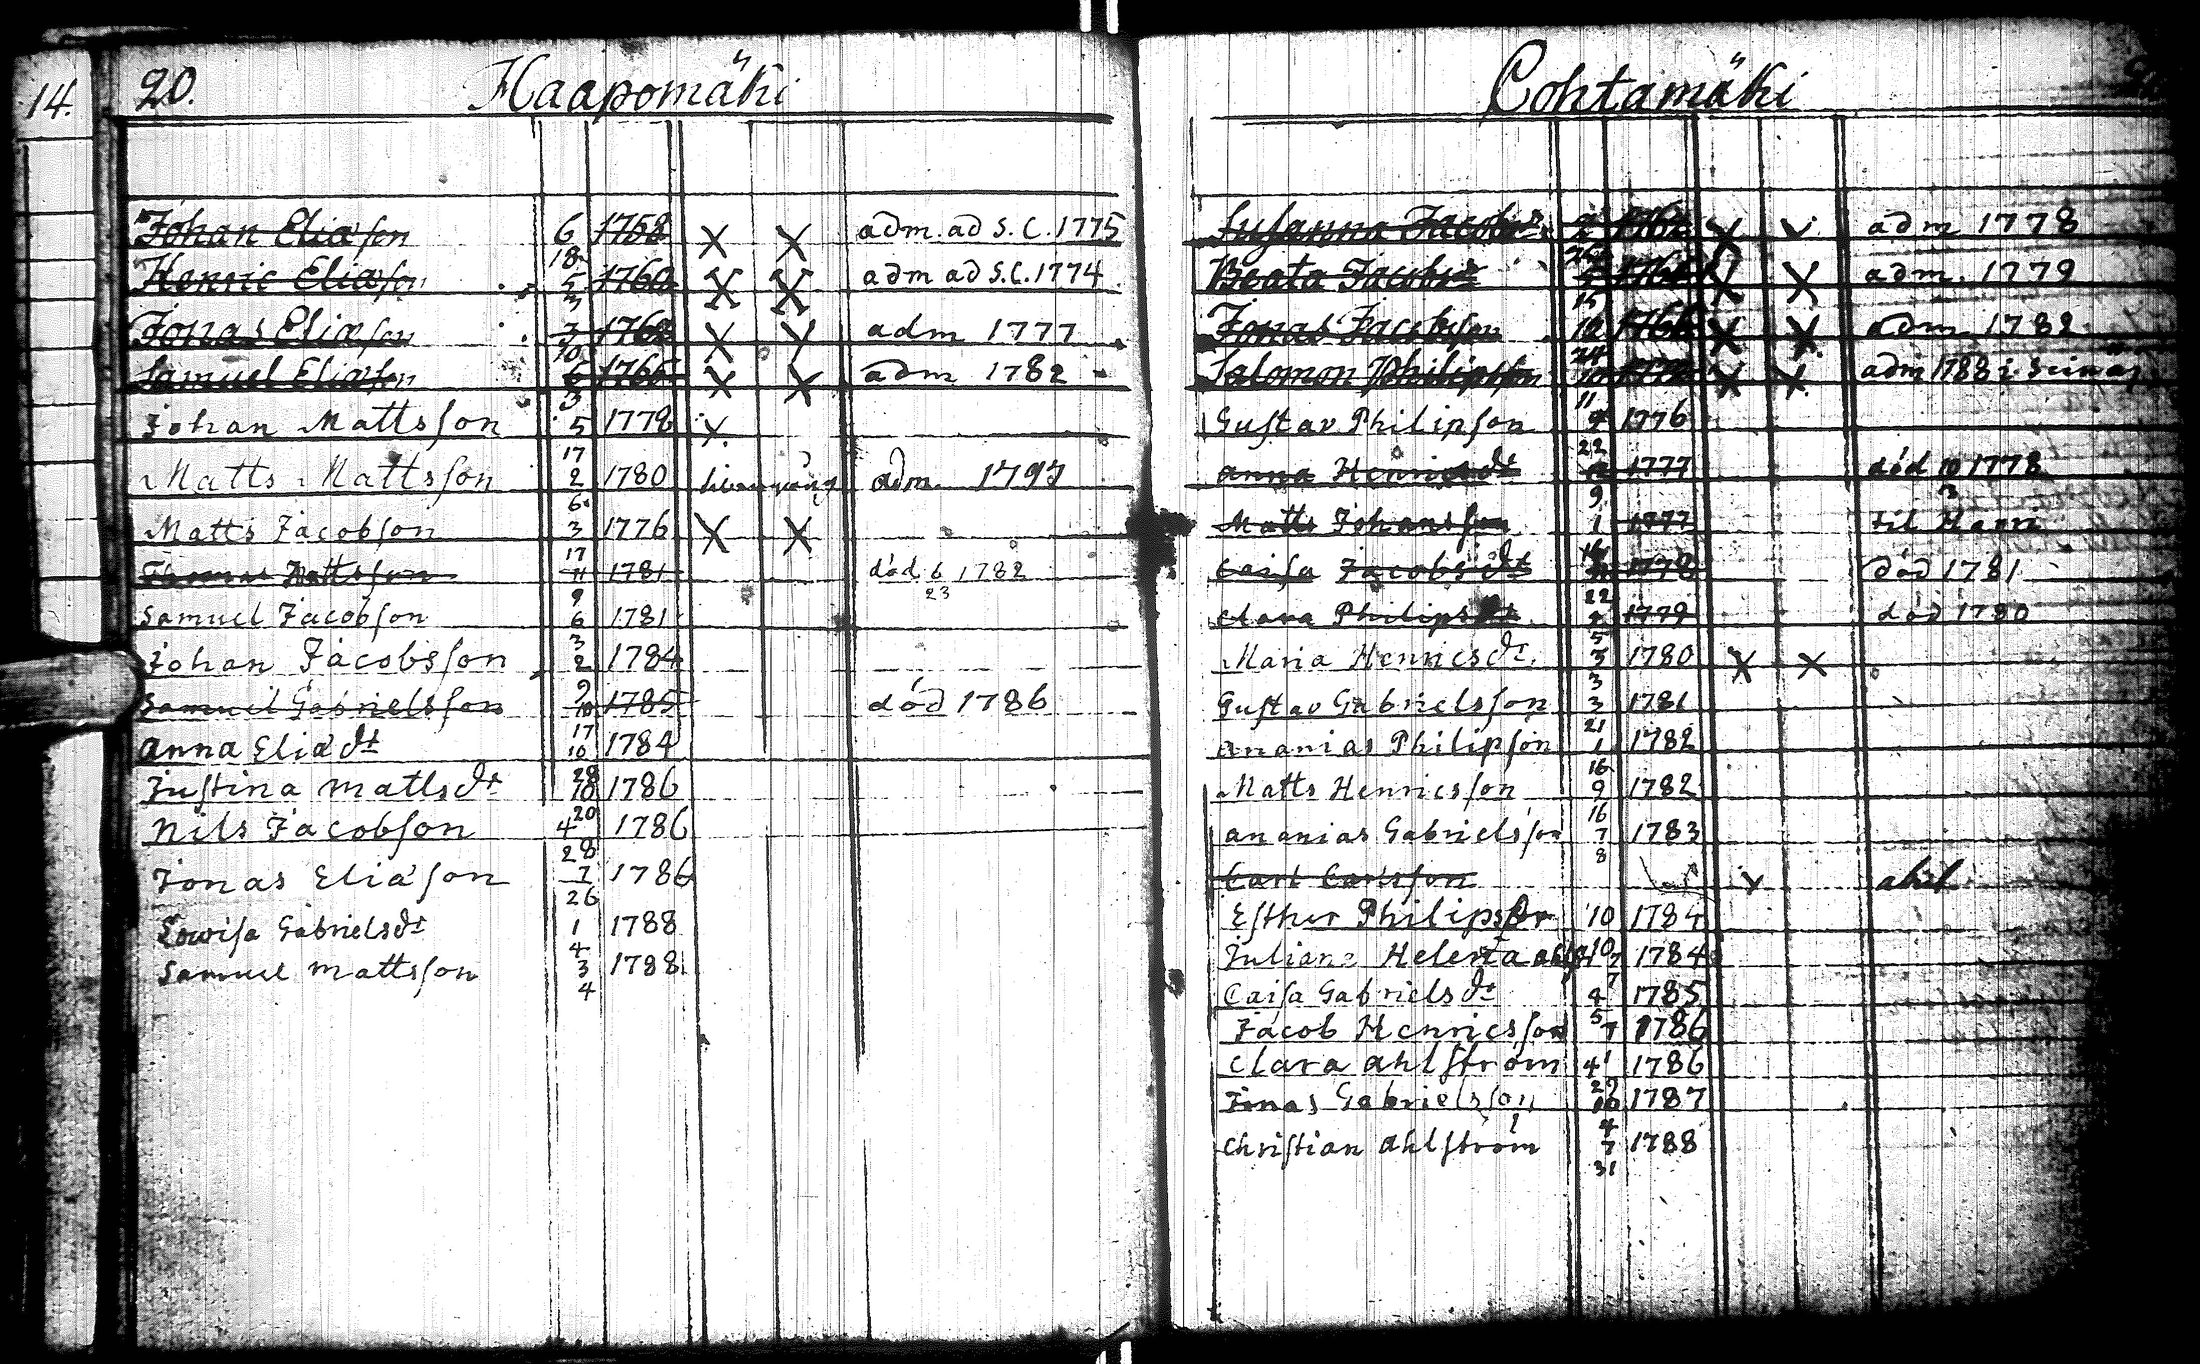 14.
20. Haapomäki
Johan Eliæson 6 18 1758 X X adm. ad S. C. 1775
Henric Eliæson 5 3 1760 X X adm ad S. C. 1774
Jonas Eliæson 10 1762 X X adm 1777
Samuel Eliæson 6 3 1765 X X adm 1782
Johan Mattsson 5 17 1778 X
Matts Mattsson 2 6 1780 adm. 1797
Matts Jacobson 3 17 1776 X X
Thomas Mattsson 11 9 1781 död 6 23 1782
Samuel Jacobson 6 3 1781
Johan Jacobsson 2 9 1784
Samuel Gabrielsson 10 17 1785 död 1786
Anna Eliædt 10 28 1784
Justina Mattsdt 10 20 1786
Nils Jacobson 4 28 1786
Jonas Eliæson 7 26 1786
Lowisa Gabrielsdt 1 4 1788
Samuel Mattsson 3 4 1788
Cohtamäki
Susanna Jacobsd X X adm 1778
Beata Jacobsd X X adm. 1779
Jonas Jacobsson 12 24 X X adm 1782
Salomon Philipsson 10 11 X X adm 1788 i
Gustav Philipson 22 1776
Anna Henricsdt 9 1777 död 10 3 1778
Matts Johansson 1 1777 til Harri
Caisa Jacobsdt 22 1778 död 1781
Clara Philipsdt 5 1779 död 1780
Maria Henricsdt. 3 3 1780 X X
Gustav Gabrielsson 3 21 1781
Ananias Philipson 1 16 1782
Matts Henricsson 9 16 1782
Ananias Gabrielsson 7 8 1783
Carl Carlsson X
Esther Philipsdr 10 10 1784
Juliana Helena 7 7 1784
Caisa Gabrielsdt 5 1785
Jacob Henricsson 7 1 1786
Clara Ahlström 4 29 1786
Jonas Gabrielsson 10 4 1787
Christian Ahlström 7 31 1788